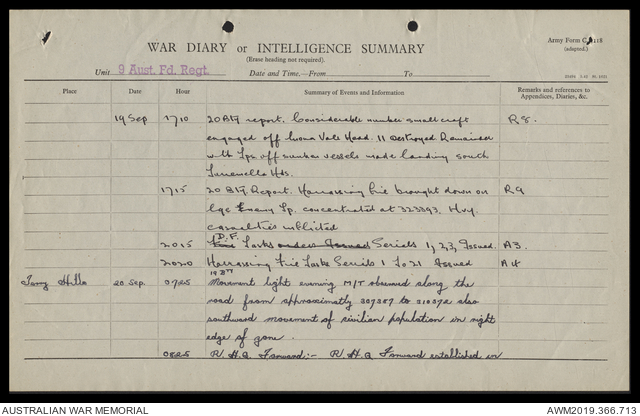 Army Form C. 2118
(adapted.)
WAR DIARY or INTELLIGENCE SUMMARY
(Erase heading not required).
Unit 9 Aust. Fd. Regt. Date and Time.—From To
Place Date Hour Summary of Events and Information Remarks and references to Appendices, Diaries, &c.
19 Sep 1710 20 Bty report. Considerable number small craft R8.
engaged off Mona Vale Head. 11 destroyed Remainder
with Tps off sunken vessels made landing south
Turrimella Hds.
1715 20 Bty. Report. Harrassing fire brought down on R9
lge Enemy Tp. concentrated at 323393. Hvy.
casualties inflicted
D.F.
2015 Fire Tasks orders issued Serials 1, 2, 3, Issued. A3.
2020 Harrassing Fire Tasks Serials 1 to 21 Issued A4
19 Bty
Terry Hills 20 Sep. 0725 Movement light evening M/T observed along the
road from approximatly 309387 to 310372 also
southward movement of civilian population in right
edge of zone.
0825 R.H.Q Forward:- R.H.Q Forward established in
AUSTRALIAN WAR MEMORIAL AWM2019.366.713